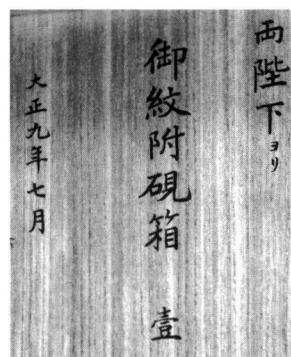 両陛下ヨリ
御紋附硯箱 壹
大正九年七月